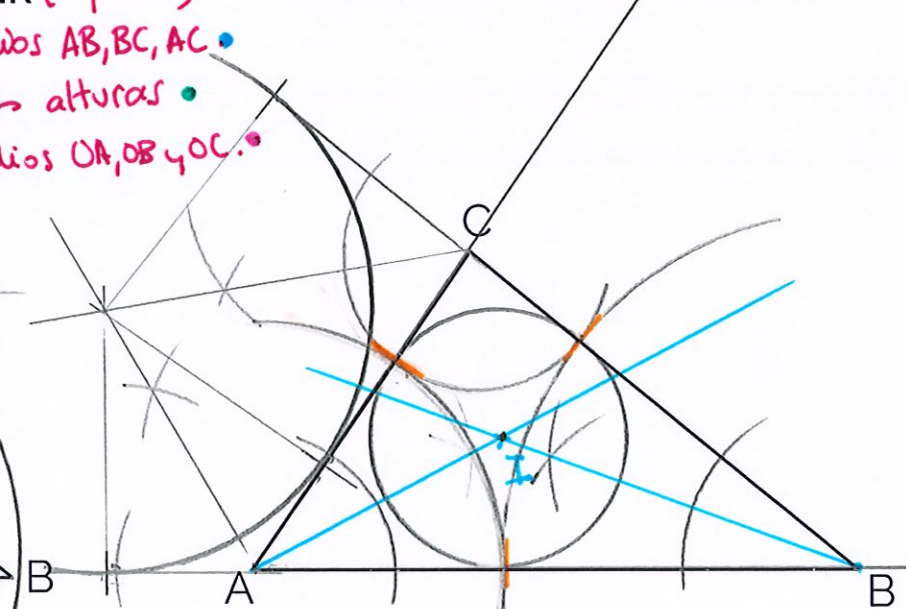 AB, BC, AC.
alturas
OA, OB y OC.
C
I
B
A
B